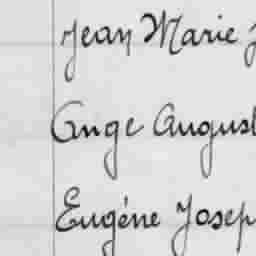 Jean Marie J
Ange August
Eugéne Josep